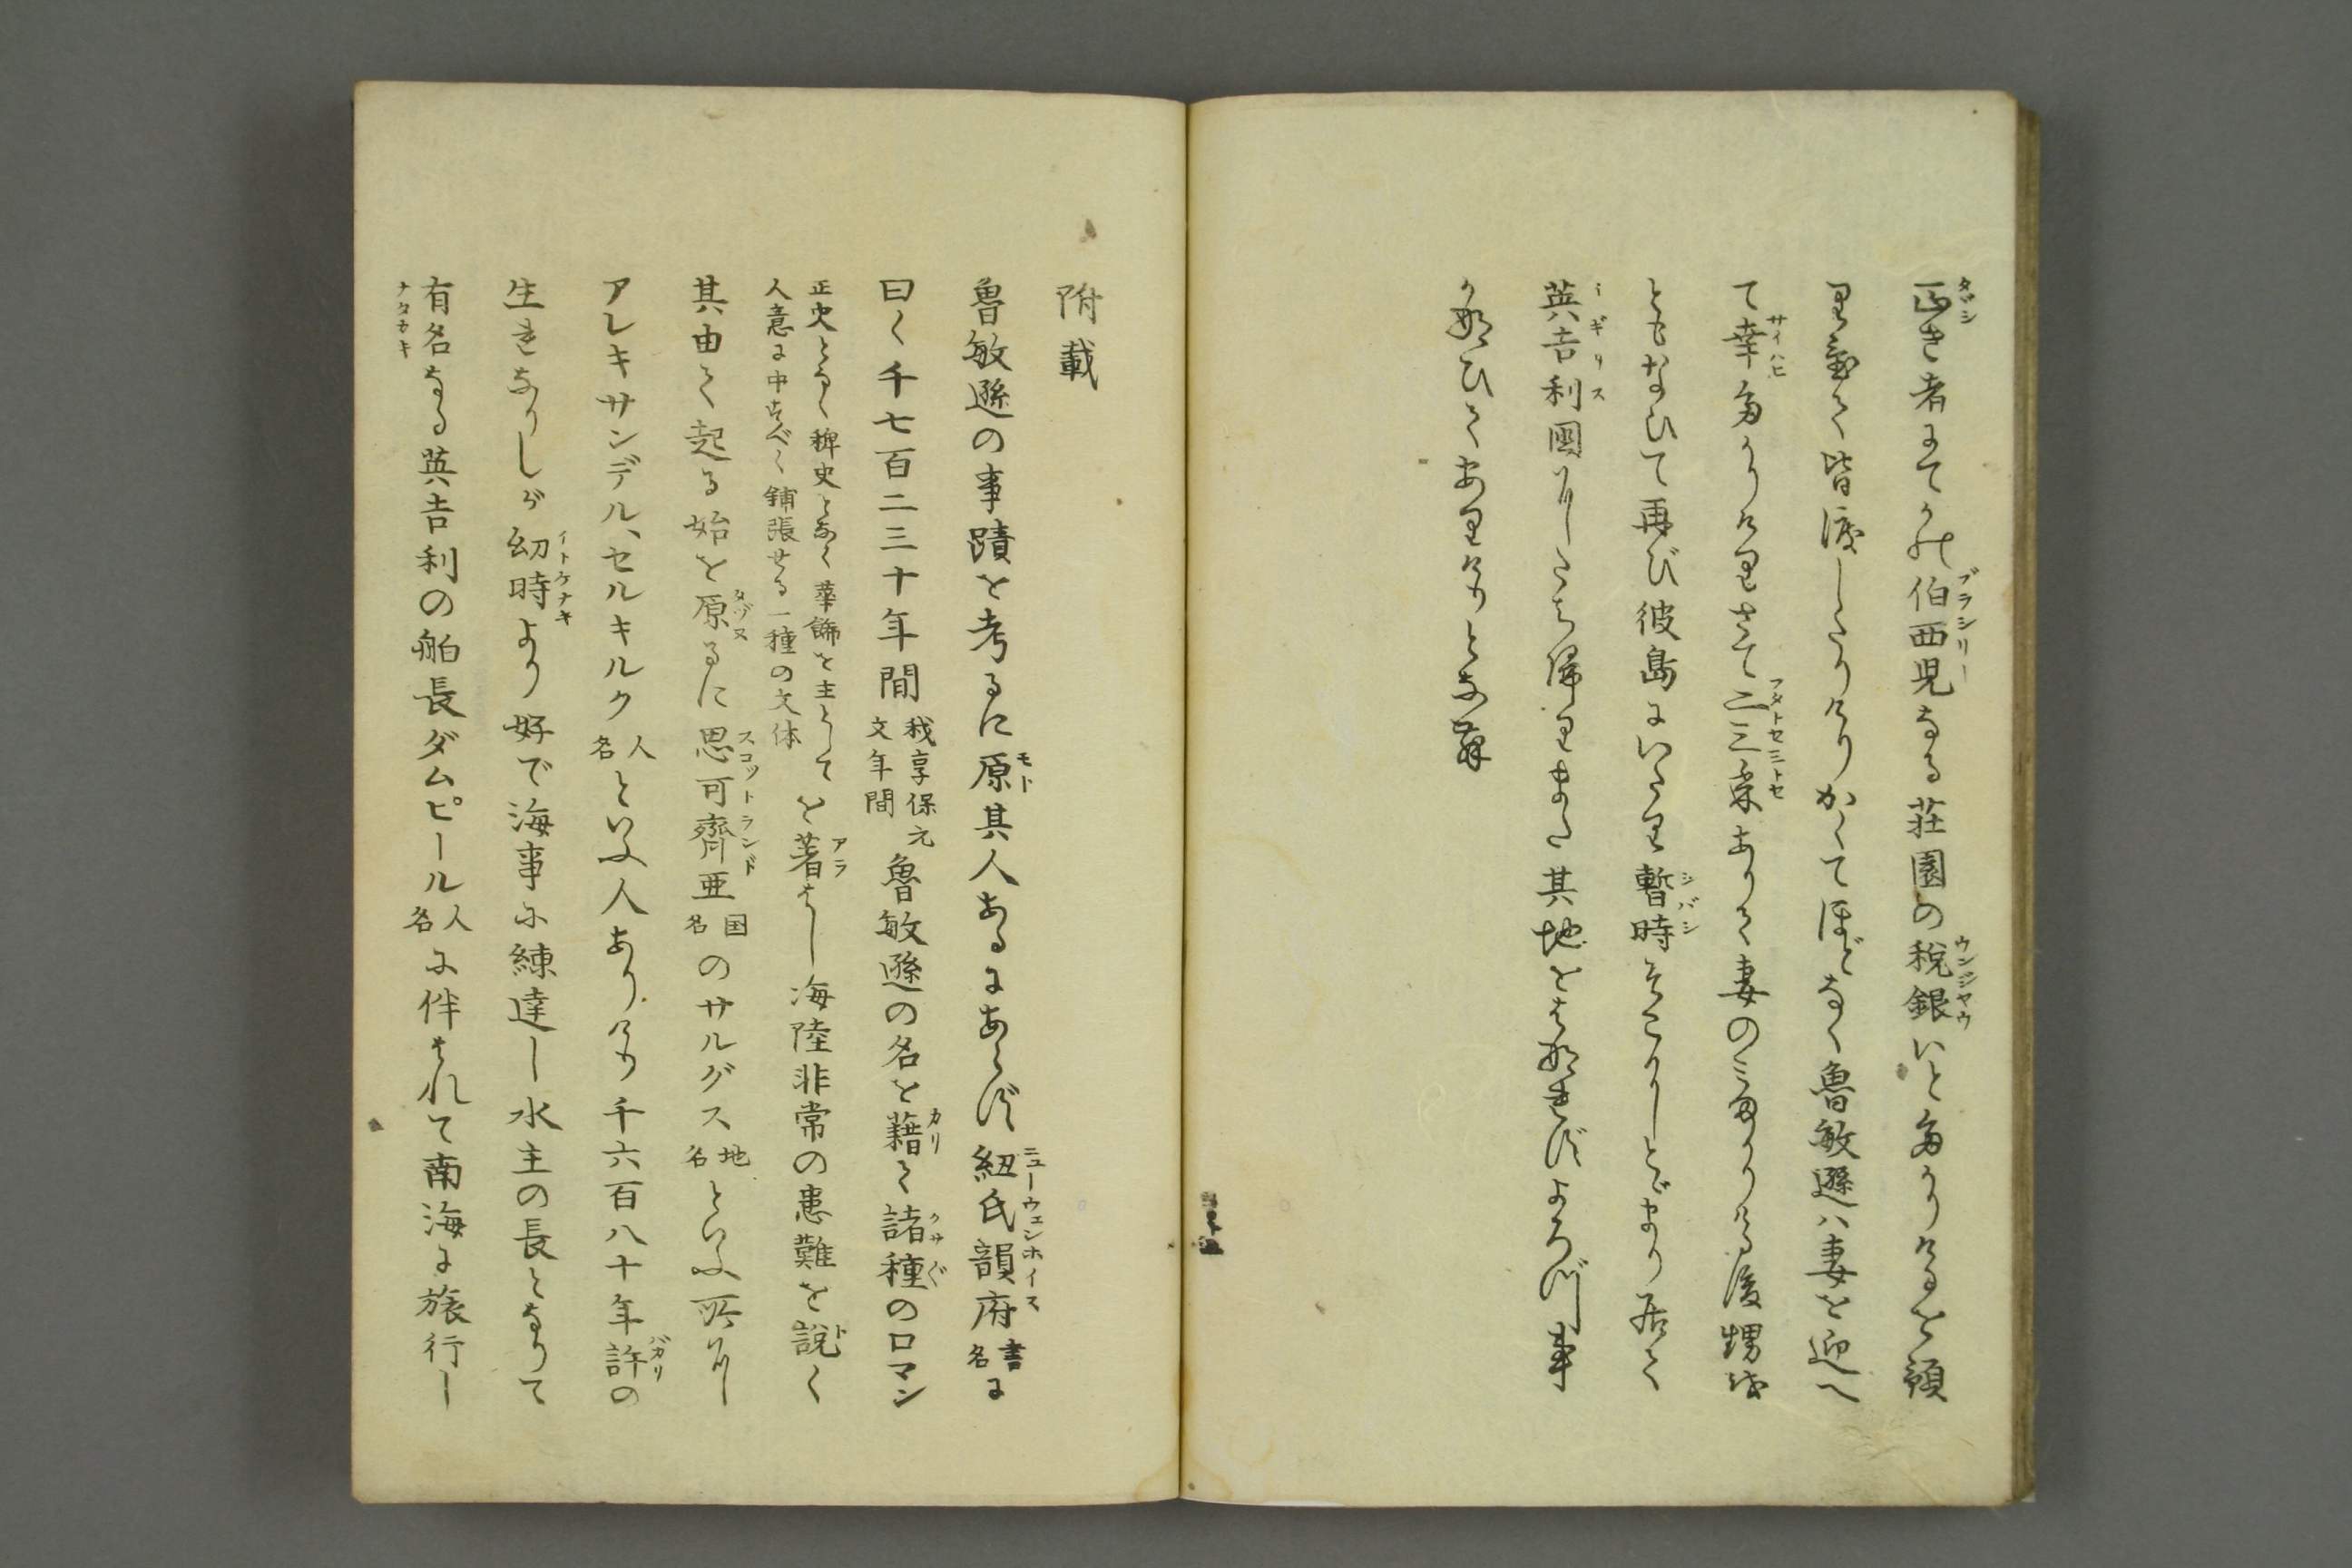 正き者にてかの伯西児なる荘園の税銀いと多かりけるを預
り置て皆渡したりけりかくてほどなく魯敏遜ハ妻を迎へ
て幸多かりけりさて二三年ありて妻のミまかりける後甥を
ともなひて再び彼島にいたり暫時そこにしとどまり居て
英吉利國にしたち帰りまた其地をはなれずよろづ事
かなひてありけりとなん
附載
魯敏遜の事蹟を考るに原其人あるにあらず紐氏韻府書名に
曰く千七百二三十年間我享保元文年間魯敏遜の名を藉て諸種のロマン
正史となく稗史となく華飾を主として人意に中すべく鋪張せる一種の文体を著はし海陸非常の患難を説く
其由て起る始を原るに思可齊亜国名のサルグス地名といふ所にし
アレキサンデル、セルキルク人名といふ人ありけり千六百八十年許の
生まれなりしが幼時より好で海事に練達し水主の長となりて
有名なる英吉利の舶長ダムピール人名に伴はれて南海に旅行し